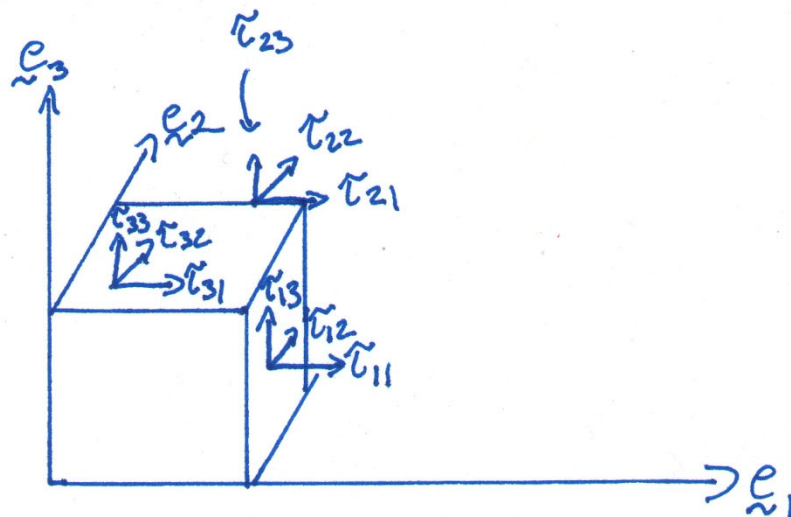 τ23
e3
e2
τ22
τ21
τ33
τ32
τ31
τ13
τ12
τ11
e1